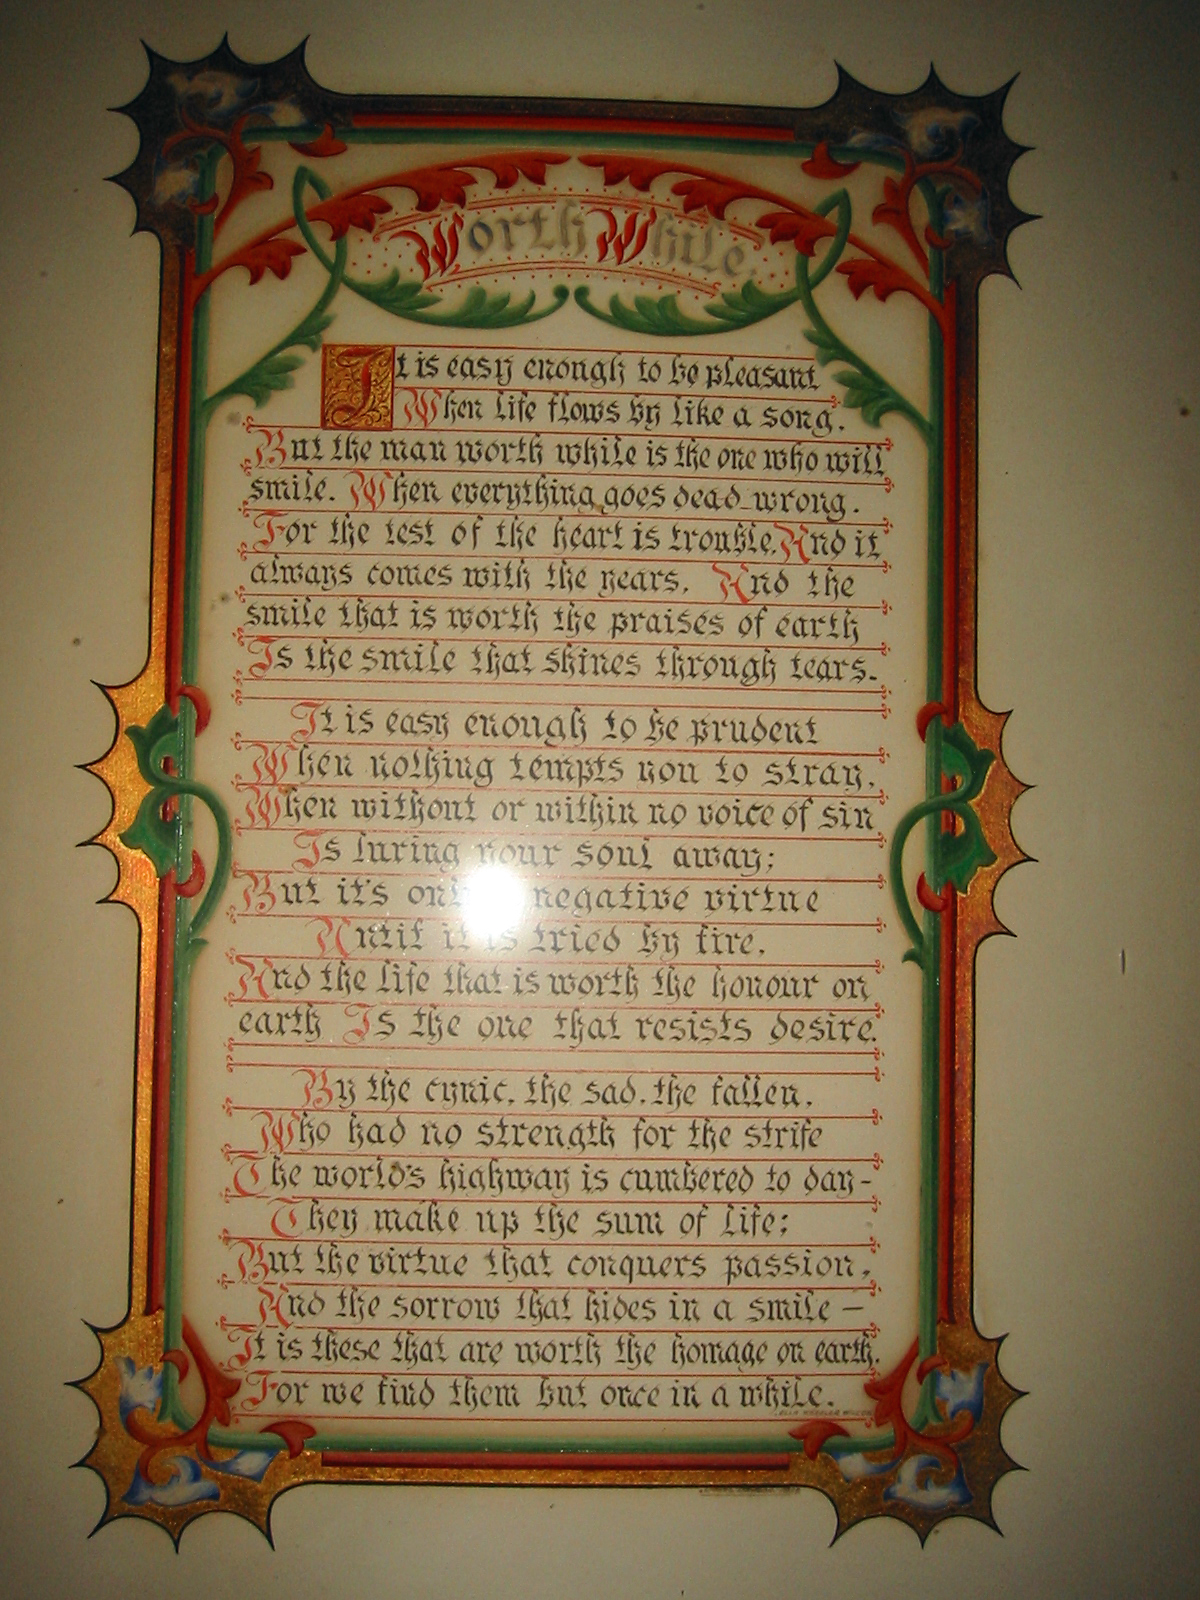 Worth While.
It is easy enough to be pleasant
When life flows by like a song.
But the man worth while is the one who will
smile. When everything goes dead wrong.
For the test of the heart is trouble. And it
always comes with the years. And the
smile that is worth the praises of earth
Is the smile that shines through tears.
It is easy enough to be prudent
When nothing tempts you to stray,
When without or within no voice of sin
Is luring your soul away;
But it's only negative virtue
Until it is tried by fire,
And the life that is worth the honour on
earth Is the one that resists desire.
By the cynic, the sad, the fallen,
Who had no strength for the strife
The world's highway is cumbered to day-
They make up the sum of life;
But the virtue that conquers passion,
And the sorrow that hides in a smile –
It is these that are worth the homage on earth.
For we find them but once in a while.
ELLA WHEELER WILCOX